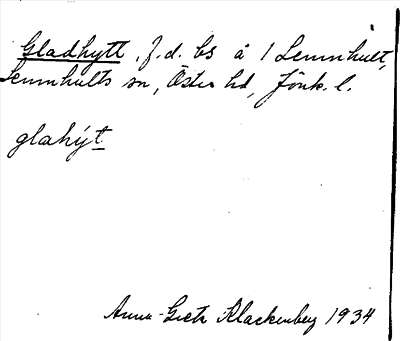 Gladhytt, f.d. bs å 1 Lemnhult,
Lemnhults sn, Östra hd, Jönk. l.
glahýt
Anna-Greta Klackenberg 1934